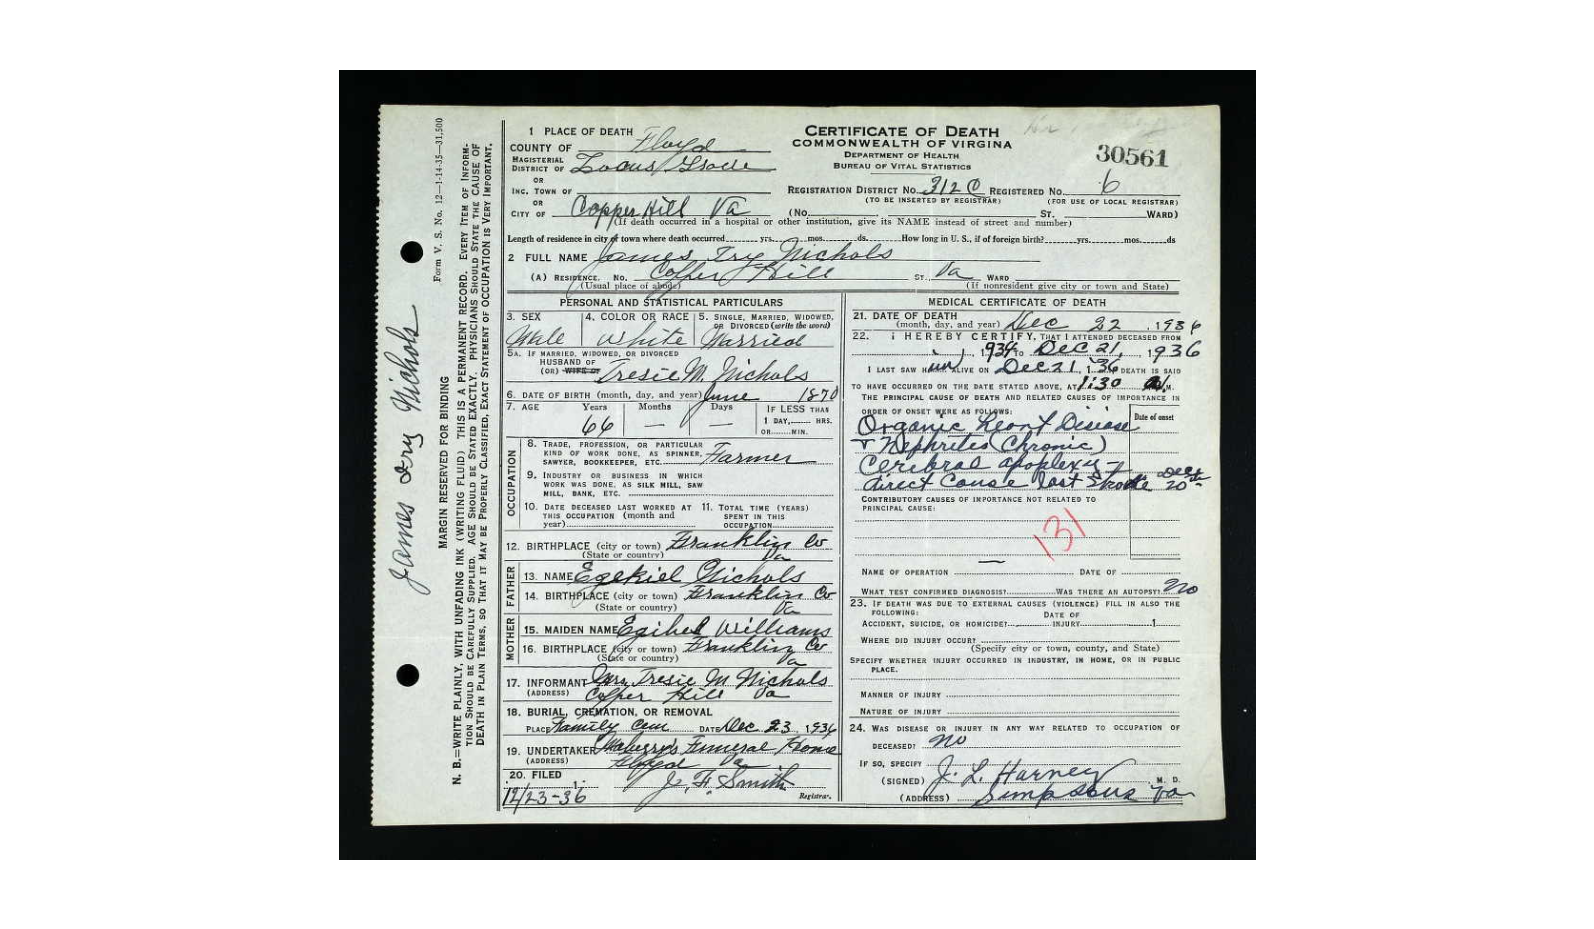 James Iry Nichols
MARGIN RESERVED FOR BINDING
Form V. S. No. 12—1-14-35—31,500
N. B.—WRITE PLAINLY, WITH UNFADING INK (WRITING FLUID) THIS IS A PERMANENT RECORD. EVERY ITEM OF INFORM-
TION SHOULD BE CAREFULLY SUPPLIED. AGE SHOULD BE STATED EXACTLY. PHYSICIANS SHOULD STATE THE CAUSE OF
DEATH IN PLAIN TERMS, SO THAT IT MAY BE PROPERLY CLASSIFIED. EXACT STATEMENT OF OCCUPATION IS VERY IMPORTANT.
CERTIFICATE OF DEATH
COMMONWEALTH OF VIRGINIA
DEPARTMENT OF HEALTH
BUREAU OF VITAL STATISTICS
30561
1 PLACE OF DEATH
COUNTY OF Floyd
MAGISTERIAL
DISTRICT OF Locus Grove
OR
INC. TOWN OF
OR
CITY OF Copper Hill Va
REGISTRATION DISTRICT NO. 312 C REGISTERED NO. 6
(TO BE INSERTED BY REGISTRAR) (FOR USE OF LOCAL REGISTRAR)
(No. ST. WARD)
(If death occurred in a hospital or other institution, give its NAME instead of street and number)
Length of residence in city or town where death occurred yrs. mos. ds. How long in U. S., if of foreign birth? yrs. mos. ds
2 FULL NAME James Iry Nichols
(A) RESIDENCE. NO. Copper Hill ST. Va WARD
(Usual place of abode) (If nonresident give city or town and State)
PERSONAL AND STATISTICAL PARTICULARS
3. SEX 4. COLOR OR RACE 5. SINGLE, MARRIED, WIDOWED,
OR DIVORCED (write the word)
Male White Married
5A. IF MARRIED, WIDOWED, OR DIVORCED
HUSBAND OF
(OR) WIFE OF Tresie M. Nichols
6. DATE OF BIRTH (month, day, and year) June 1870
7. AGE Years Months Days IF LESS THAN
1 DAY, HRS.
OR MIN.
66 — —
OCCUPATION
8. TRADE, PROFESSION, OR PARTICULAR
KIND OF WORK DONE, AS SPINNER,
SAWYER, BOOKKEEPER, ETC. Farmer
9. INDUSTRY OR BUSINESS IN WHICH
WORK WAS DONE, AS SILK MILL, SAW
MILL, BANK, ETC.
10. DATE DECEASED LAST WORKED AT
THIS OCCUPATION (month and
year)
11. TOTAL TIME (YEARS)
SPENT IN THIS
OCCUPATION
12. BIRTHPLACE (city or town) Franklin Co
(State or country) Va
FATHER
13. NAME Ezekiel Nichols
14. BIRTHPLACE (city or town) Franklin Co
(State or country) Va
MOTHER
15. MAIDEN NAME Williams
16. BIRTHPLACE (city or town) Franklin Co
(State or country) Va
17. INFORMANT Mrs Tresie M Nichols
(ADDRESS) Copper Hill Va
18. BURIAL, CREMATION, OR REMOVAL
PLACE Family Cem DATE Dec 23, 1936
19. UNDERTAKER Funeral Home
(ADDRESS) Floyd Va
20. FILED
12/23-36 J. F. Smith
Registrar.
MEDICAL CERTIFICATE OF DEATH
21. DATE OF DEATH
(month, day, and year) Dec 22, 1936
22. I HEREBY CERTIFY, THAT I ATTENDED DECEASED FROM
, 1934 TO Dec 21, 1936
I LAST SAW HIM ALIVE ON Dec 21, '36 DEATH IS SAID
TO HAVE OCCURRED ON THE DATE STATED ABOVE, AT 1:30 M.
THE PRINCIPAL CAUSE OF DEATH AND RELATED CAUSES OF IMPORTANCE IN
ORDER OF ONSET WERE AS FOLLOWS: Date of onset
Organic Heart Disease
+ Nephrites (Chronic)
Cerebral apoplexy —
direct Cause last Stroke Dec 20th
CONTRIBUTORY CAUSES OF IMPORTANCE NOT RELATED TO
PRINCIPAL CAUSE:
131
NAME OF OPERATION — DATE OF
WHAT TEST CONFIRMED DIAGNOSIS? WAS THERE AN AUTOPSY? No
23. IF DEATH WAS DUE TO EXTERNAL CAUSES (VIOLENCE) FILL IN ALSO THE
FOLLOWING:
ACCIDENT, SUICIDE, OR HOMICIDE? DATE OF INJURY 1
WHERE DID INJURY OCCUR?
(Specify city or town, county, and State)
SPECIFY WHETHER INJURY OCCURRED IN INDUSTRY, IN HOME, OR IN PUBLIC
PLACE.
MANNER OF INJURY
NATURE OF INJURY
24. WAS DISEASE OR INJURY IN ANY WAY RELATED TO OCCUPATION OF
DECEASED? No
IF SO, SPECIFY
(SIGNED) J. L. Harney M. D.
(ADDRESS) Simpsons Va